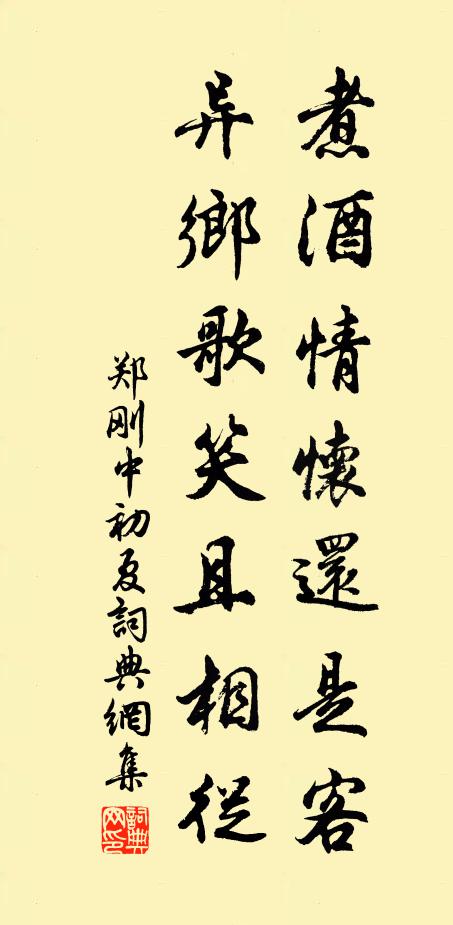 煮酒情懷還是客
异鄉歌笑且相從
郑刚中初夏詞典網集
詞典网印